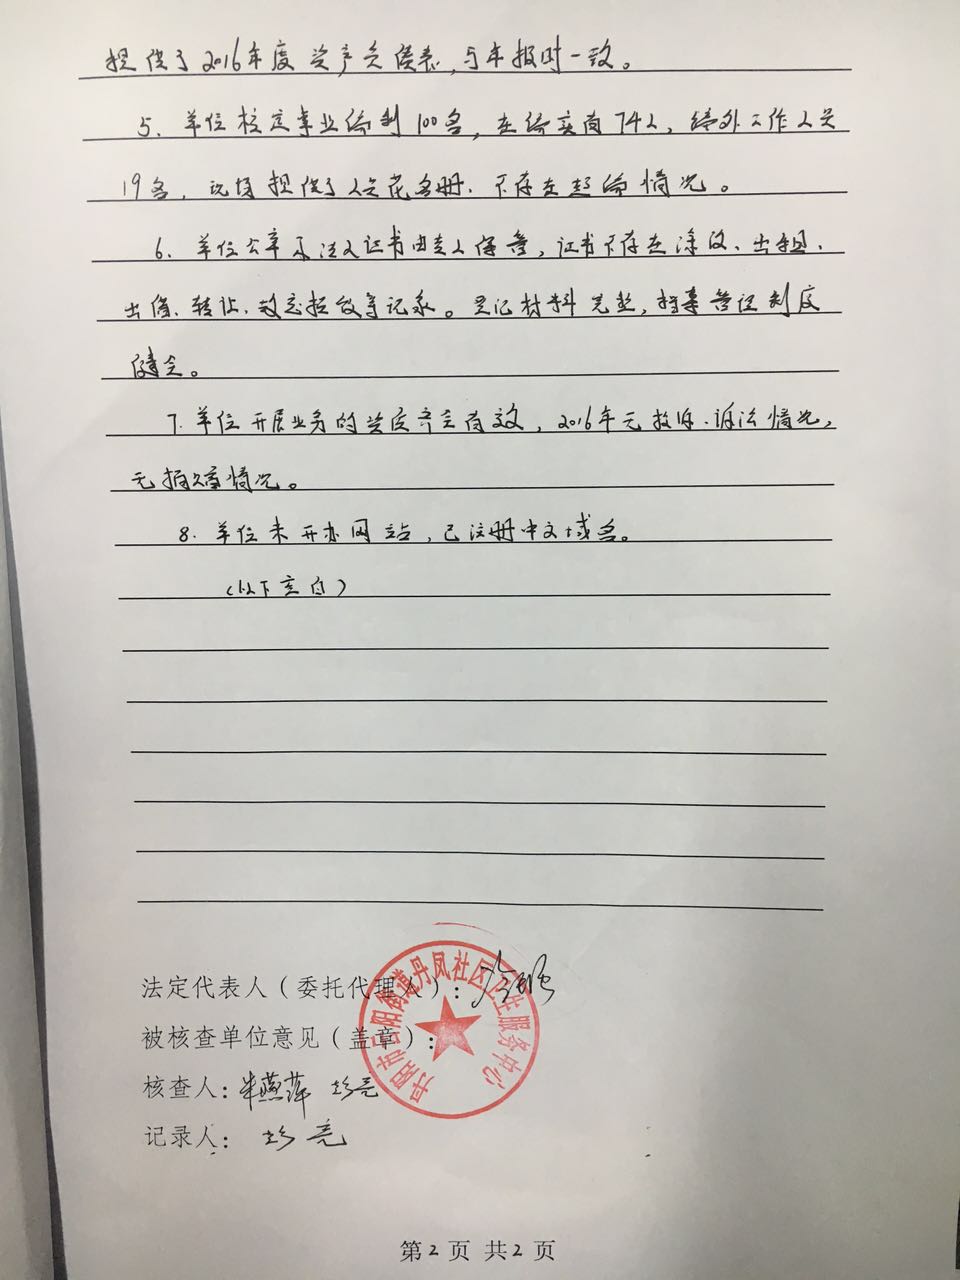 提供了2016年度资产负债表,与年报时一致。
5、单位核定事业编制100名,在编实有74人,编外工作人员
19名,现场提供了人员花名册、不存在超编情况。
6、单位公章及法人证书由专人保管,证书不存在涂改、出租、
出借、转让、故意损毁等记录。登记材料完整,档案管理制度
健全。
7、单位开展业务的资质齐全有效,2016年无投诉、诉讼情况,
无抽逃情况。
8、单位未开办网站,已注册中文域名。
(以下空白)
法定代表人(委托代理人):
被核查单位意见(盖章):
丹阳市云阳街道丹凤社区卫生服务中心
核查人:
记录人:
第2页 共2页